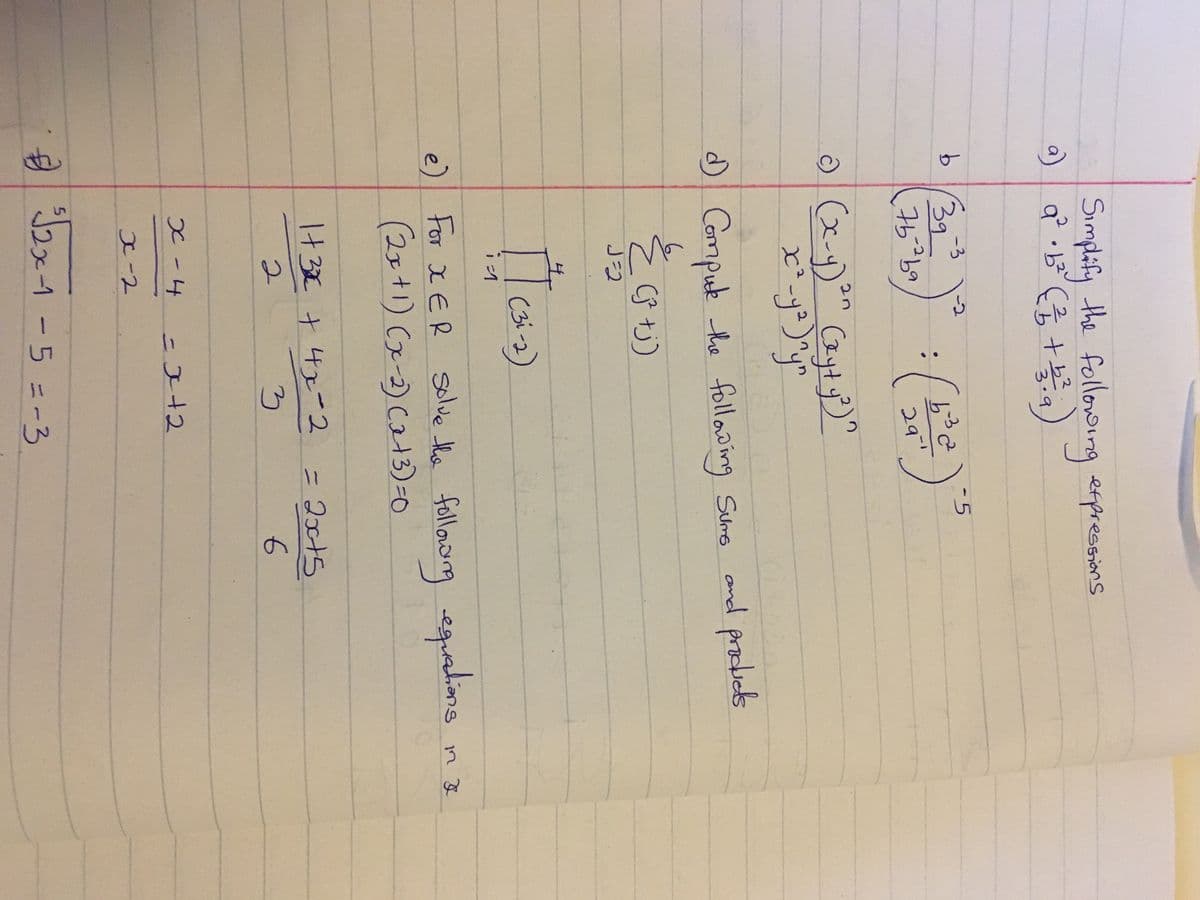 Simplify the following expressions
a) a² · b² (2/b + b²/3·a)
b (3a⁻³/7b⁻²b9)⁻² : (b⁻³c²/2a⁻¹)⁻⁵
c) (x-y)²ⁿ (xy+y²)ⁿ
x²-y²)ⁿyⁿ
d) Compute the following Sums and products
6
Σ (j² + j)
J=2
4
∏ (3i-2)
i=1
e) For x ∈ R solve the following equations in x
(2x+1) (x-2) (x+3)=0
1+3x/2 + 4x-2/3 = 2x+5/6
x-4/x-2 = x+2
f) ⁵√2x-1 - 5 = -3